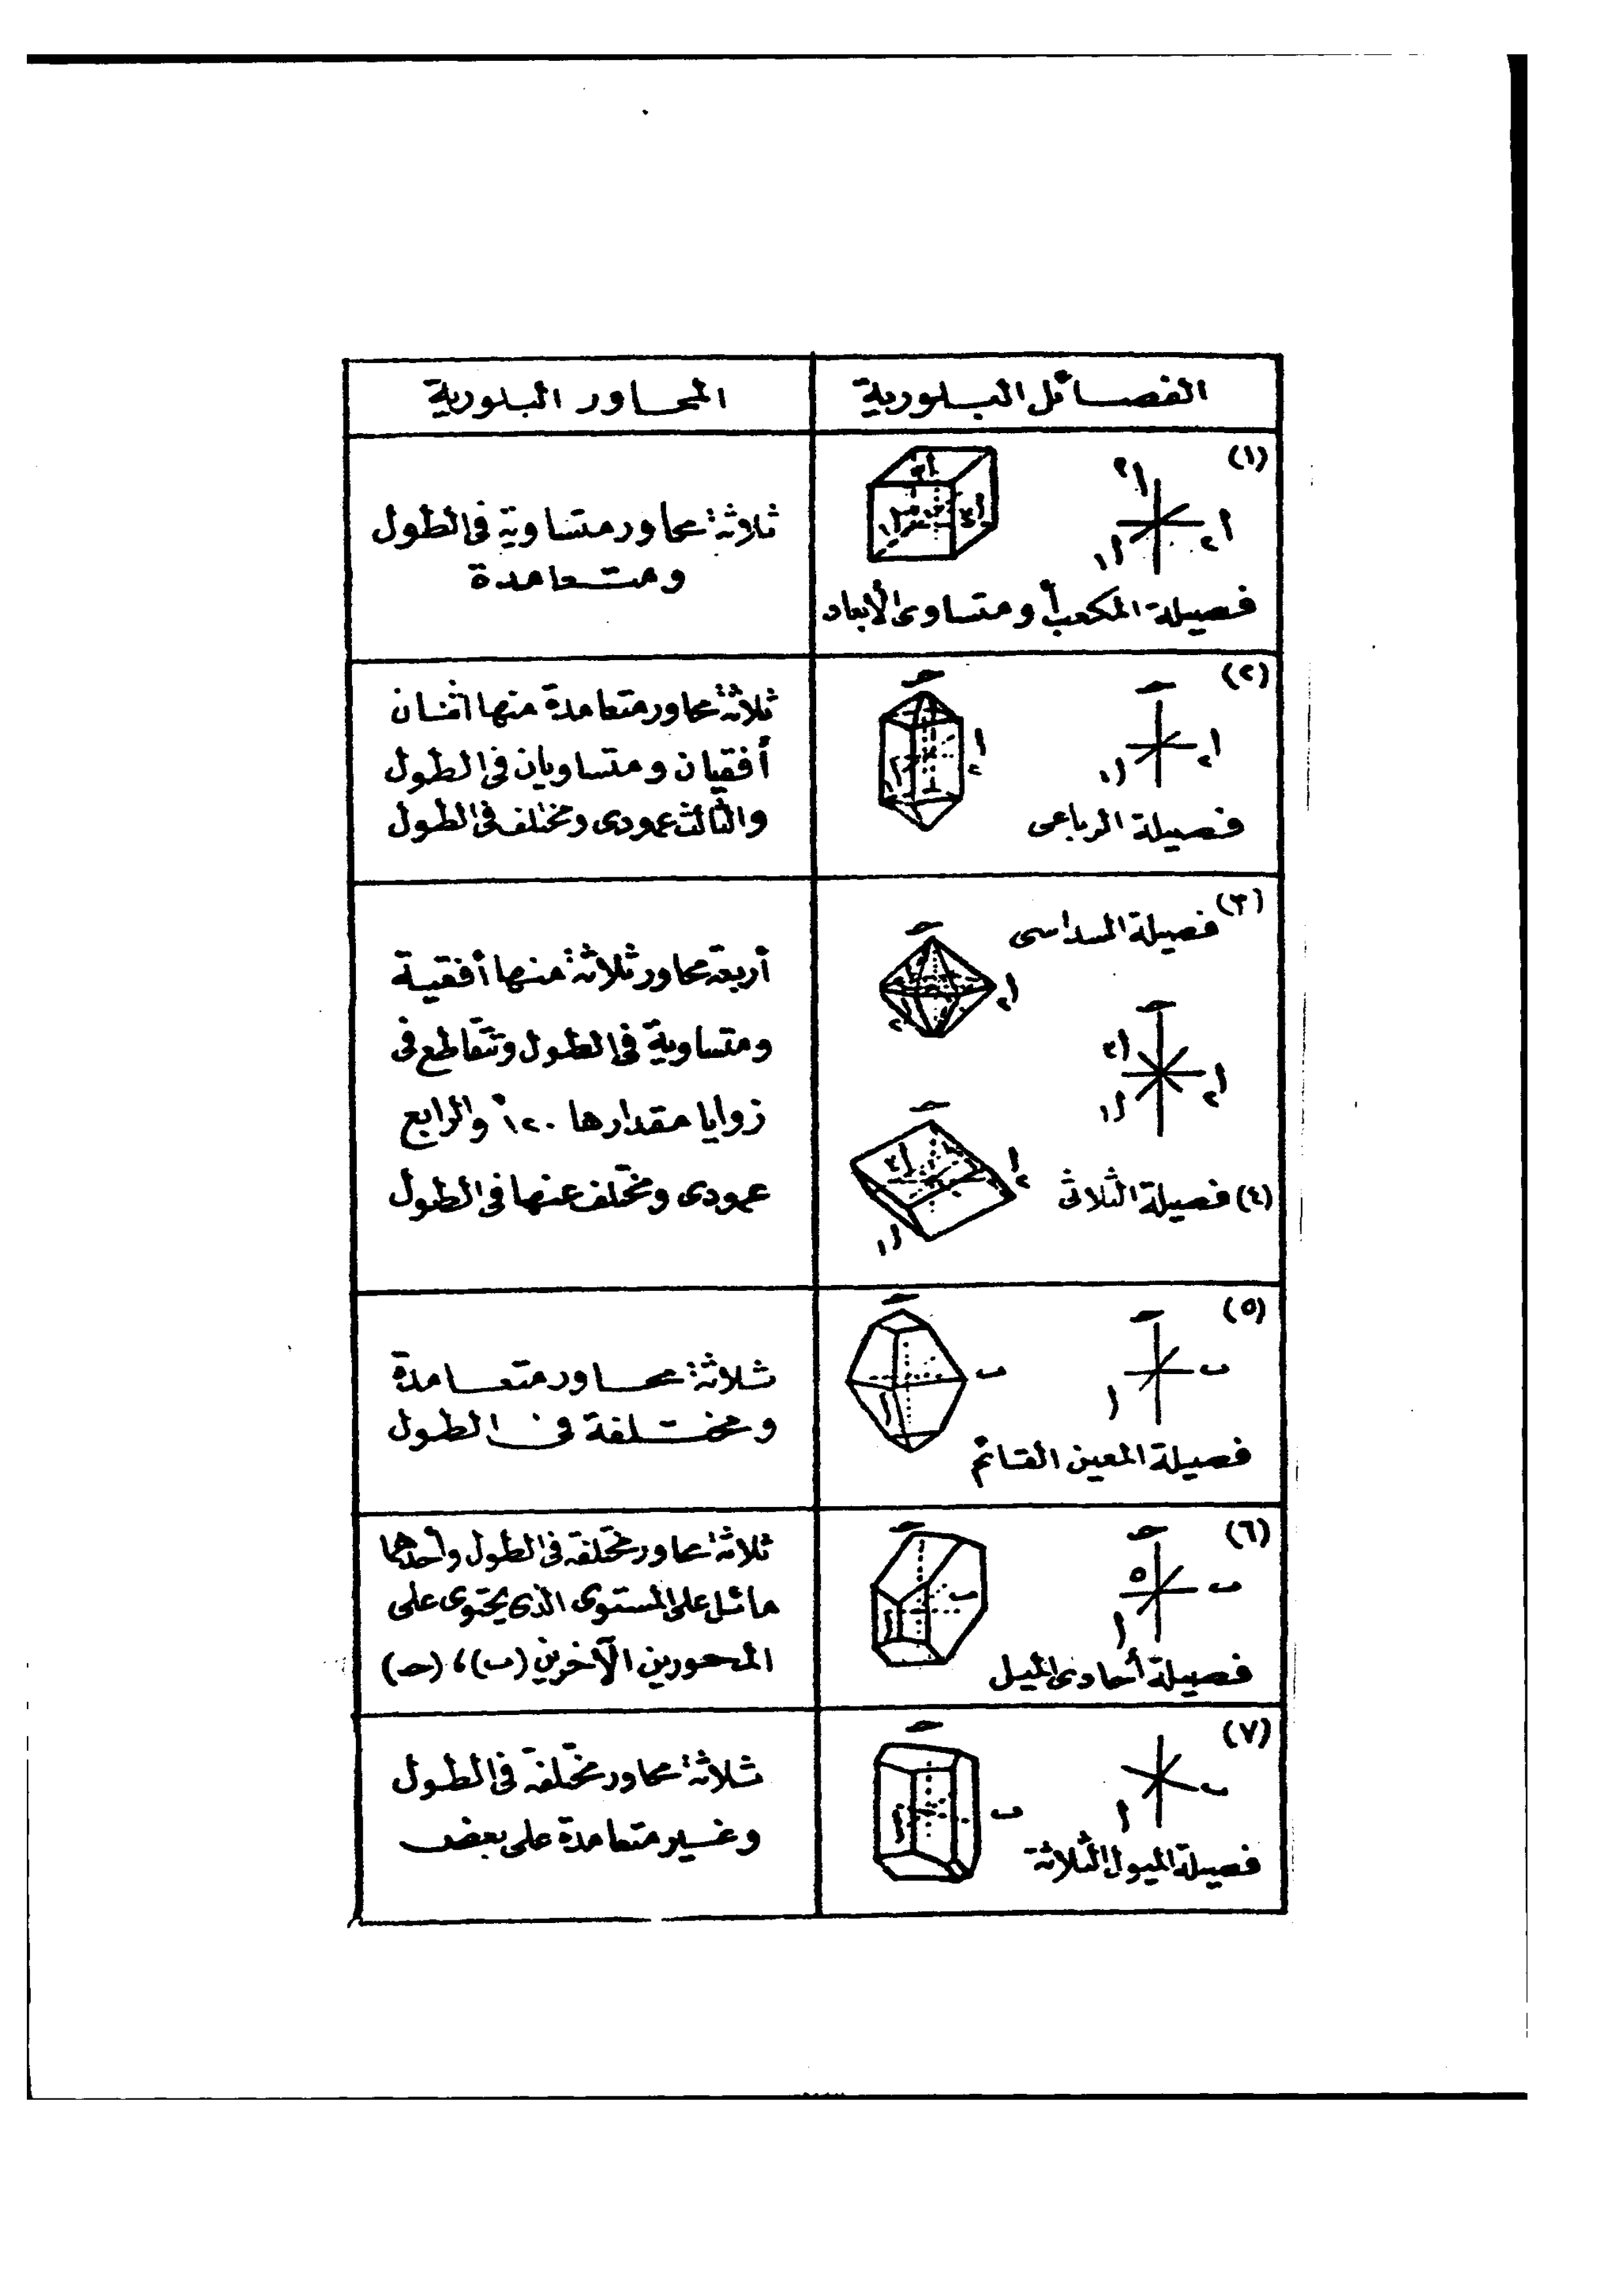 الفصائل البلورية
المحاور البلورية
(١)
أ٣
أ٢
أ١
أ٣
أ٢
أ١
فصيلة المكعب أو متساوى الأبعاد
ثلاثة محاور متساوية فى الطول
ومتعامدة
(٢)
حـ
أ٢
أ١
حـ
أ٢
أ١
فصيلة الرباعى
ثلاثة محاور متعامدة منها اثنان
أفقيان ومتساويان فى الطول
والثالث عمودى ومختلف فى الطول
(٣) فصيلة السداسى
حـ
أ٢
حـ
أ٣
أ٢
أ١
(٤) فصيلة الثلاثى
حـ
أ٣
أ٢
أ١
أربعة محاور ثلاثة منها أفقية
ومتساوية فى الطول وتتقاطع فى
زوايا مقدارها ١٢٠° والرابع
عمودى ومختلف عنها فى الطول
(٥)
حـ
ب
أ
حـ
ب
أ
فصيلة المعين القائم
ثلاثة محاور متعامدة
ومختلفة فى الطول
(٦)
حـ
ب
أ
حـ
ب
أ
فصيلة أحادى الميل
ثلاثة محاور مختلفة فى الطول وأحدهما
مائل على المستوى الذى يحتوى على
المحورين الآخرين (ب)، (حـ)
(٧)
ب
أ
حـ
ب
أ
فصيلة الميول الثلاثة
ثلاثة محاور مختلفة فى الطول
وغير متعامدة على بعض